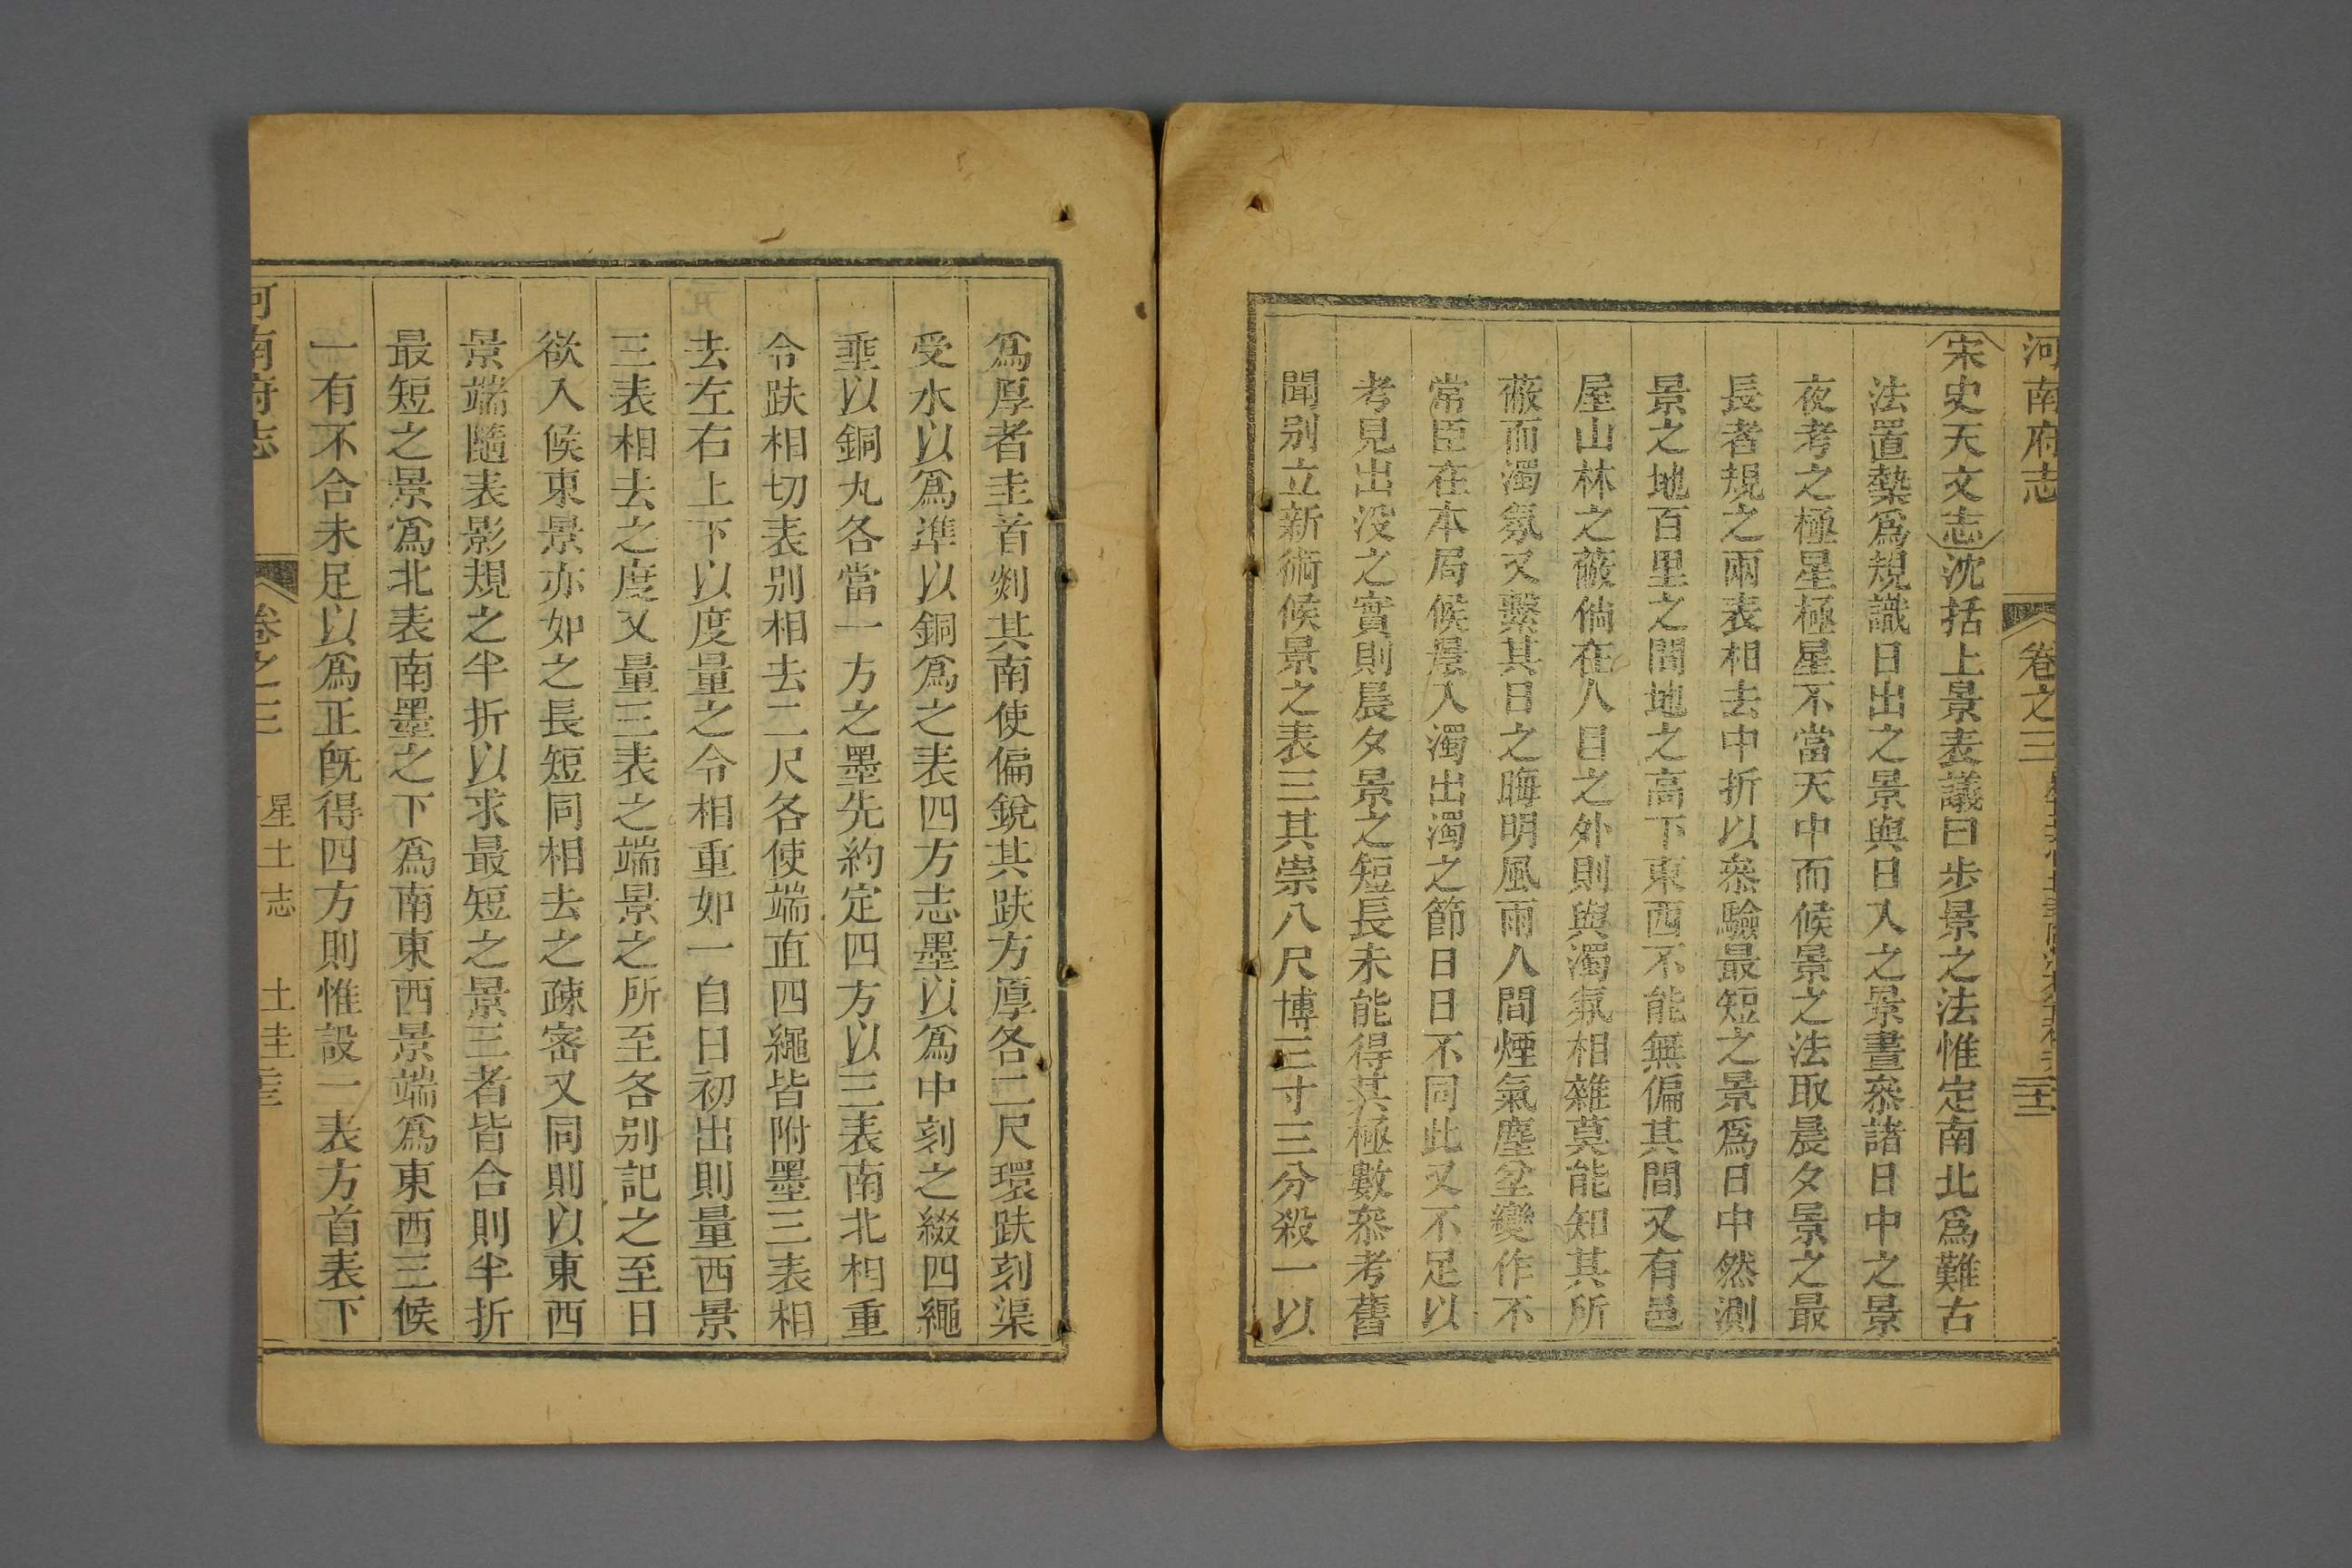 河南府志　卷之三
宋史天文志沈括上景表議曰步景之法惟定南北爲難古
法置槷爲規識日出之景與日入之景晝叅諸日中之景
夜考之極星極星不當天中而候景之法取晨夕景之最
長者規之兩表相去中折以叅驗最短之景爲日中然測
景之地百里之間地之高下東西不能無偏其間又有邑
屋山林之蔽倘在人目之外則與濁氛相雜莫能知其所
蔽而濁氛又繫其日之晦明風雨人間煙氣塵坌變作不
常臣在本局候景入濁出濁之節日日不同此又不足以
考見出没之實則晨夕景之短長未能得其極數叅考舊
聞别立新術候景之表三其崇八尺博三寸三分殺一以
爲厚者圭首剡其南使偏銳其趺方厚各二尺環趺刻渠
受水以爲準以銅爲之表四方志墨以爲中刻之綴四繩
垂以銅丸各當一方之墨先約定四方以三表南北相重
令趺相切表别相去二尺各使端直四繩皆附墨三表相
去左右上下以度量之令相重如一自日初出則量西景
三表相去之度又量三表之端景之所至各别記之至日
欲入候東景亦如之長短同相去之疎密又同則以東西
景端隨表影規之半折以求最短之景三者皆合則半折
最短之景爲北表南墨之下爲南東西景端爲東西三候
一有不合未足以爲正旣得四方則惟設一表方首表下
河南府志　卷之三　星土志　土圭